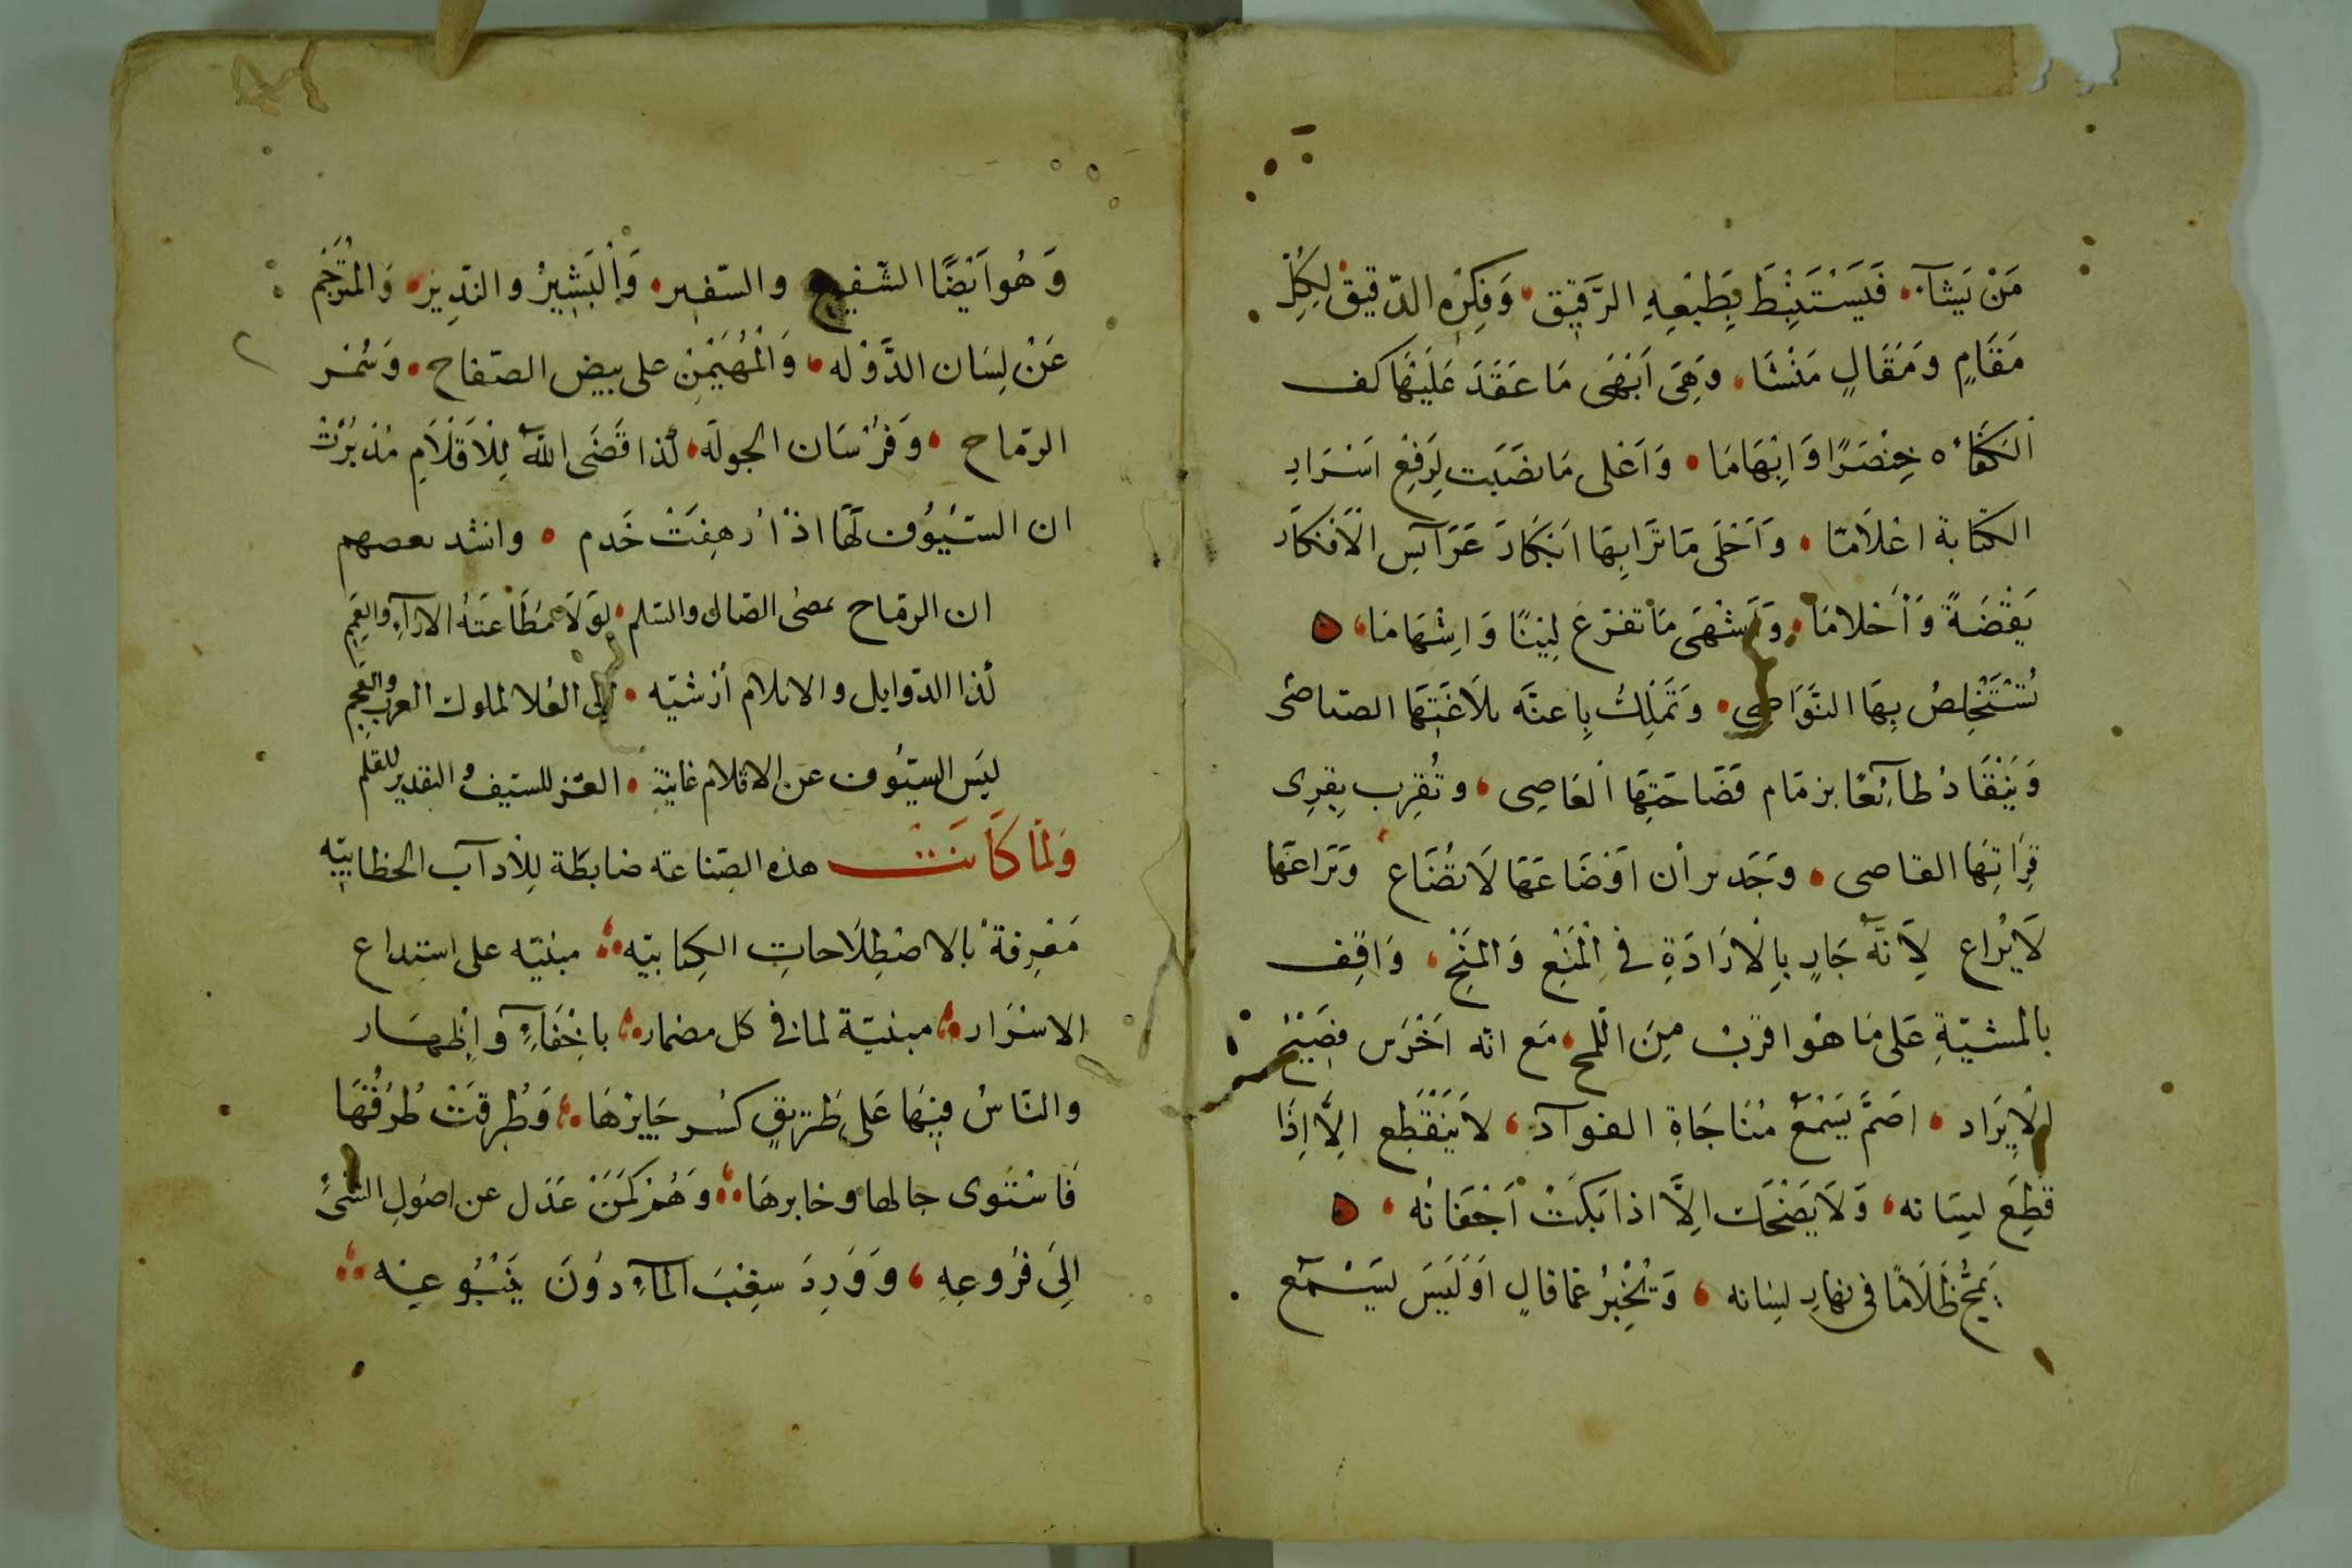 مَنْ يَشَآءُ فَيَسْتَنْبِطَ بِطَبْعِهِ الرَّقِيقِ وَفِكرِهِ الدّقيق لِكُلِّ
مَقَامٍ وَمَقَالٍ مَنْشَا وَهِيَ اَبْهَى مَا عَقَدَ عَلَيْهَا كف
الكفاه خِنْصَرًا وَاِبْهَامَا وَاَعْلى مَا نصَبَت لِرَفْعِ اَسْرَارِ
الكتابة اعْلَامًا وَاَحْلَى مَا تَرَا بِهَا اَبْكَارَ عَرَآئسِ الْأَفْكَار
يَقْضَةً وَأَحْلامَا وَاَشْهَى مَا تفرّعَ لِيْنًا وَاِشْهَامَا
تُسْتَخْلِصُ بِهَا النَّوَاصِي وَتَمْلِكُ بِاعنَّة بلَاغَتِهَا الصياصي
وَيَنْقَادُ طآئِعًا بزمَام فَصَاحَتِهَا الْعَاصِى وتُقرِب بِقِرِى
قِرَاتِهَا القاصى وجَدير أن اَوْضَاعَهَا لَا تُضَاع وَيَرَاعَهَا
لَا يُرَاع لِأَنَّهُ جَارٍ بِالْارَادَةِ فى الْمَنْعِ وَالمَنْحِ وَاقِف
بالمشيّةِ عَلى مَا هُوَ اقربُ مِنَ اللّمح مَع انّه اَخْرَس فصِيْحُ
الْاِيرَاد اصَمَّ يَسْمَعُ مُنَاجَاةِ الفوآد لَا يَنْقَطِع اِلَّا اِذَا
قُطِعَ لِسَانه وَلَا يَضْحَك اِلَّا اذا بَكَتْ اَجْفَانُه
يَمجُّ ظَلَامًا فى نهارِ لسَانه وَيُخْبِرُ عما قالٍ اَوَلَيْسَ لَيسْمَع
وَهُوَ اَيْضًا الشّفيع والسّفير وَالْبَشِيرُ والنّذِير وَالمُتَرْجَم
عَنْ لِسَان الدَّوْله وَالْمُهَيْمِنِ على بيض الصّفاح وَسُمْر
الرّماح وَفرْسَان الجوله لذا قَضَى اللهُ لِلْاَقْلَامِ مُذ بُرئتْ
ان السّيُوف لَهَا اذْ أُرهِفَتْ خَدم وانشد بعضهم
ان الرماح لولَا مُطَاعَتُهُ الارآءِ والقمم
لذا الذّوابل والاقلام ارشيّه الى العُلا لملوك العرب والعجم
ليَس السّيُوف عن الاقلام غانيَة العز للسّيف والتقدير للقلم
وَلمَّا كَانَت هذه الصّناعَة ضابطَة لِلْأدآب الخطابيّه
مَعْرِفةُ بالاصْطِلَاحاتِ الكِتابيّه مبنيّه على استبداع
الاسْرَار مبنيّة لما فى كل مضمار باخْفَآءٍ واِظهَار
والنّاسُ فِيْهَا عَلى طَرِيقٍ كسُر جَايزهَا وَطُرقتْ طُرُقُهَا
فَاسْتَوى جالها وخابرهَا وَهُمْ كَمَنْ عَدَل عن اصُولِ الشّىء
اِلَى فُرُوعِهِ وَوَرِدَ سغِبَ المآءِ دُوْنَ يَنْبُوعِه